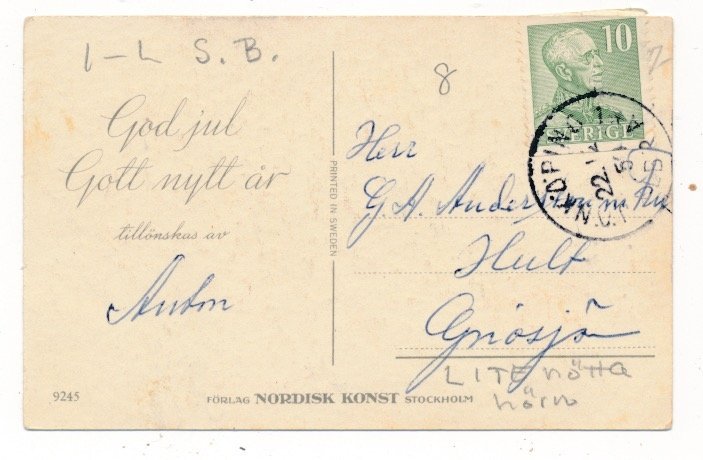 I-L S.B.
8
10
SVERIGE
22.12
51
God jul
Gott nytt år
tillönskas av
Anton
PRINTED IN SWEDEN
Herr
G.A. Andersson m. Fru
Hult
Gnosjö
LITE nötta
hörn
9245
FÖRLAG NORDISK KONST STOCKHOLM